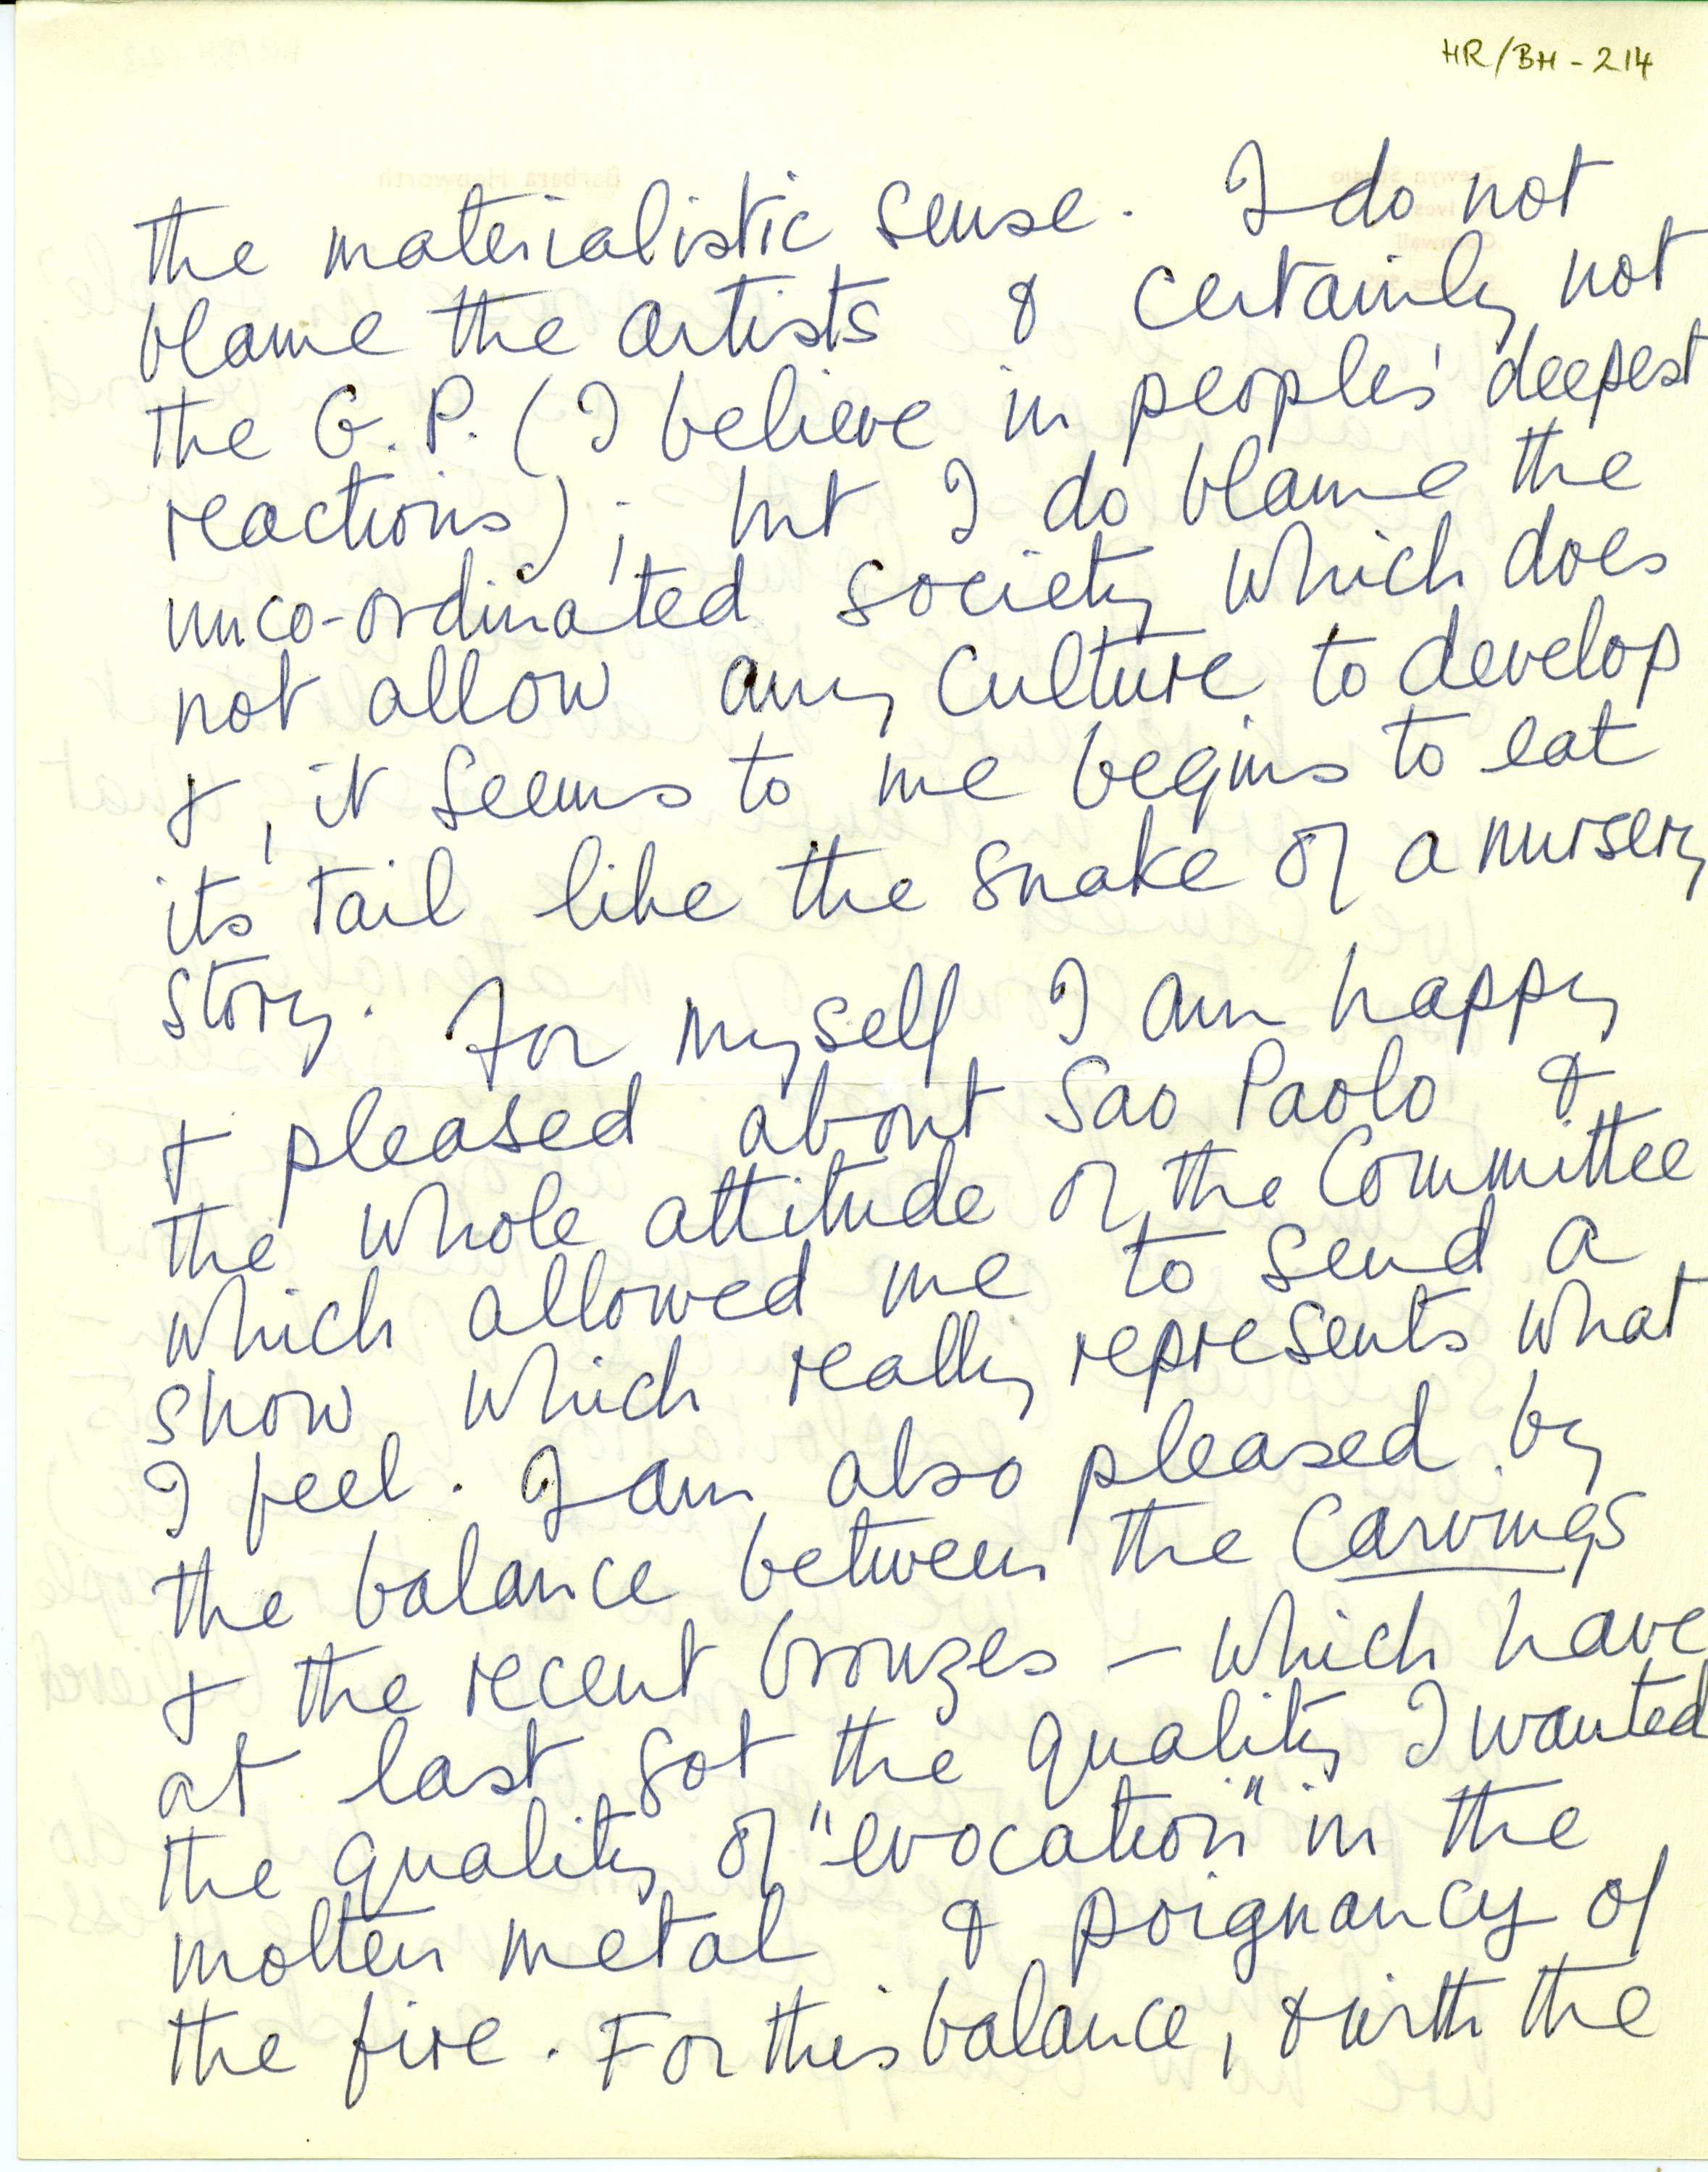 HR/BH - 214
the materialistic sense. I do not
blame the artists & certainly not
the G.P. (I believe in peoples' deepest
reactions); but I do blame the
unco-ordinated society which does
not allow any culture to develop
&, it seems to me begins to eat
its tail like the snake of a nursery
story. For myself I am happy
& pleased about Sao Paolo &
the whole attitude of the Committee
which allowed me to send a
show which really represents what
I feel. I am also pleased by
the balance between the carvings
& the recent bronzes – which have
at last got the quality I wanted
the quality of "evocation" in the
molten metal & poignancy of
the fire. For this balance, & with the